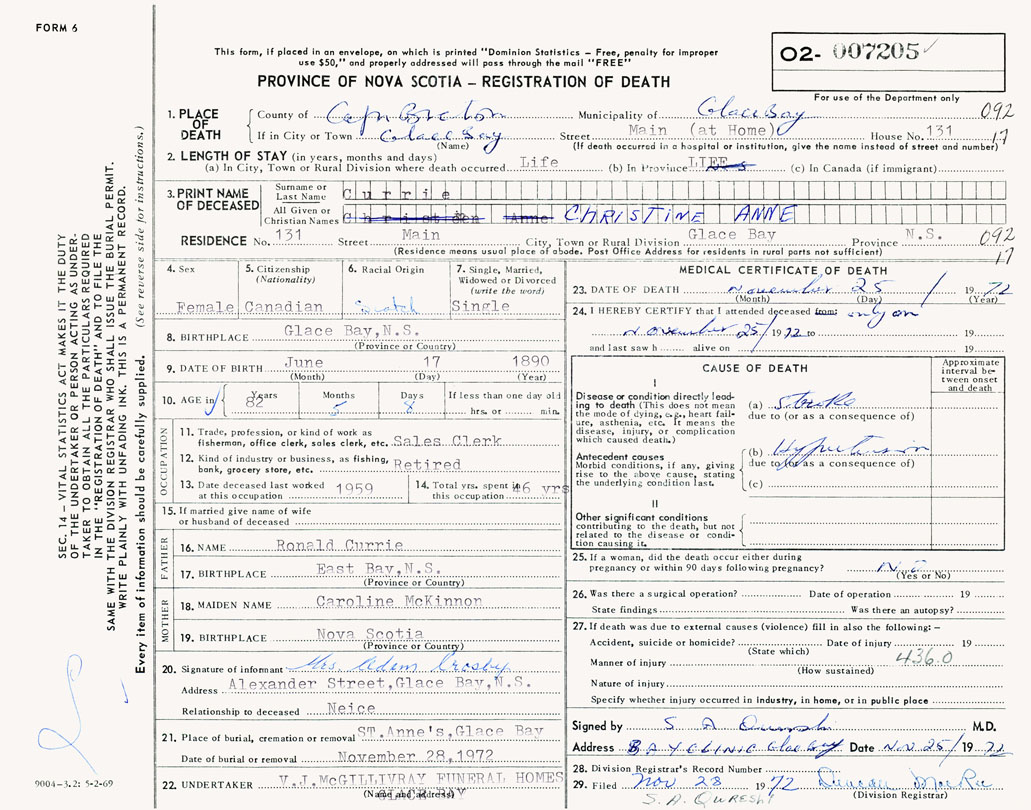 FORM 6
This form, if placed in an envelope, on which is printed "Dominion Statistics – Free, penalty for improper
use $50," and properly addressed will pass through the mail "FREE"
PROVINCE OF NOVA SCOTIA – REGISTRATION OF DEATH
O2- 007205
For use of the Department only
1. PLACE OF DEATH
County of Cape Breton Municipality of Glace Bay 092
If in City or Town Glace Bay Street Main (at Home) House No. 131 17
(Name) (If death occurred in a hospital or institution, give the name instead of street and number)
2. LENGTH OF STAY (in years, months and days)
(a) In City, Town or Rural Division where death occurred Life (b) In Province LIFE (c) In Canada (if immigrant)
3. PRINT NAME OF DECEASED
Surname or Last Name Currie
All Given or Christian Names Anne CHRISTINE ANNE
RESIDENCE No. 131 Street Main City, Town or Rural Division Glace Bay Province N.S. 092
(Residence means usual place of abode. Post Office Address for residents in rural parts not sufficient) 17
4. Sex Female
5. Citizenship (Nationality) Canadian
6. Racial Origin Scotch
7. Single, Married, Widowed or Divorced (write the word) Single
8. BIRTHPLACE Glace Bay,N.S.
(Province or Country)
9. DATE OF BIRTH June 17 1890
(Month) (Day) (Year)
10. AGE in Years 82 Months 5 Days 8 If less than one day old
hrs. or min.
OCCUPATION
11. Trade, profession, or kind of work as
fisherman, office clerk, sales clerk, etc. Sales Clerk
12. Kind of industry or business, as fishing,
bank, grocery store, etc. Retired
13. Date deceased last worked
at this occupation 1959
14. Total yrs. spent in
this occupation 46 yrs
15. If married give name of wife
or husband of deceased
FATHER
16. NAME Ronald Currie
17. BIRTHPLACE East Bay,N.S.
(Province or Country)
MOTHER
18. MAIDEN NAME Caroline McKinnon
19. BIRTHPLACE Nova Scotia
(Province or Country)
20. Signature of informant Mrs Adem Crosby
Address Alexander Street,Glace Bay,N.S.
Relationship to deceased Neice
21. Place of burial, cremation or removal ST.Anne's,Glace Bay
Date of burial or removal November 28,1972
22. UNDERTAKER V.J.McGILLIVRAY FUNERAL HOMES
(Name and address) GLACE BAY
MEDICAL CERTIFICATE OF DEATH
23. DATE OF DEATH November 25 1972
(Month) (Day) (Year)
24. I HEREBY CERTIFY that I attended deceased from: only on
November 25/ 1972 to 19
and last saw h alive on 19
CAUSE OF DEATH
Approximate interval between onset and death
I
Disease or condition directly leading to death (This does not
mean the mode of dying, e.g., heart failure, asthenia, etc. It means the
disease, injury, or complication
which caused death.)
(a) Stroke
due to (or as a consequence of)
Antecedent causes
Morbid conditions, if any, giving
rise to the above cause, stating
the underlying condition last.
(b) Hypertension
due to (or as a consequence of)
(c)
II
Other significant conditions
contributing to the death, but not
related to the disease or condition causing it.
25. If a woman, did the death occur either during
pregnancy or within 90 days following pregnancy? No
(Yes or No)
26. Was there a surgical operation? Date of operation 19
State findings Was there an autopsy?
27. If death was due to external causes (violence) fill in also the following: –
Accident, suicide or homicide? Date of injury 19
(State which)
Manner of injury 436.0
(How sustained)
Nature of injury
Specify whether injury occurred in industry, in home, or in public place
Signed by S. A Qureshi M.D.
Address BAYCLINIC Glace Bay Date Nov 25/ 1972
28. Division Registrar's Record Number
29. Filed Nov 28 1972 Duncan MacRae
(Division Registrar)
S. A. QURESHI
SEC. 14 – VITAL STATISTICS ACT MAKES IT THE DUTY
OF THE UNDERTAKER OR PERSON ACTING AS UNDER-
TAKER TO OBTAIN ALL THE PARTICULARS REQUIRED
IN THE "REGISTRATION OF DEATH" AND TO FILE THE
SAME WITH THE DIVISION REGISTRAR WHO SHALL ISSUE THE BURIAL PERMIT.
WRITE PLAINLY WITH UNFADING INK. THIS IS A PERMANENT RECORD.
Every item of information should be carefully supplied. (See reverse side for instructions.)
9004–3.2: 5-2-69